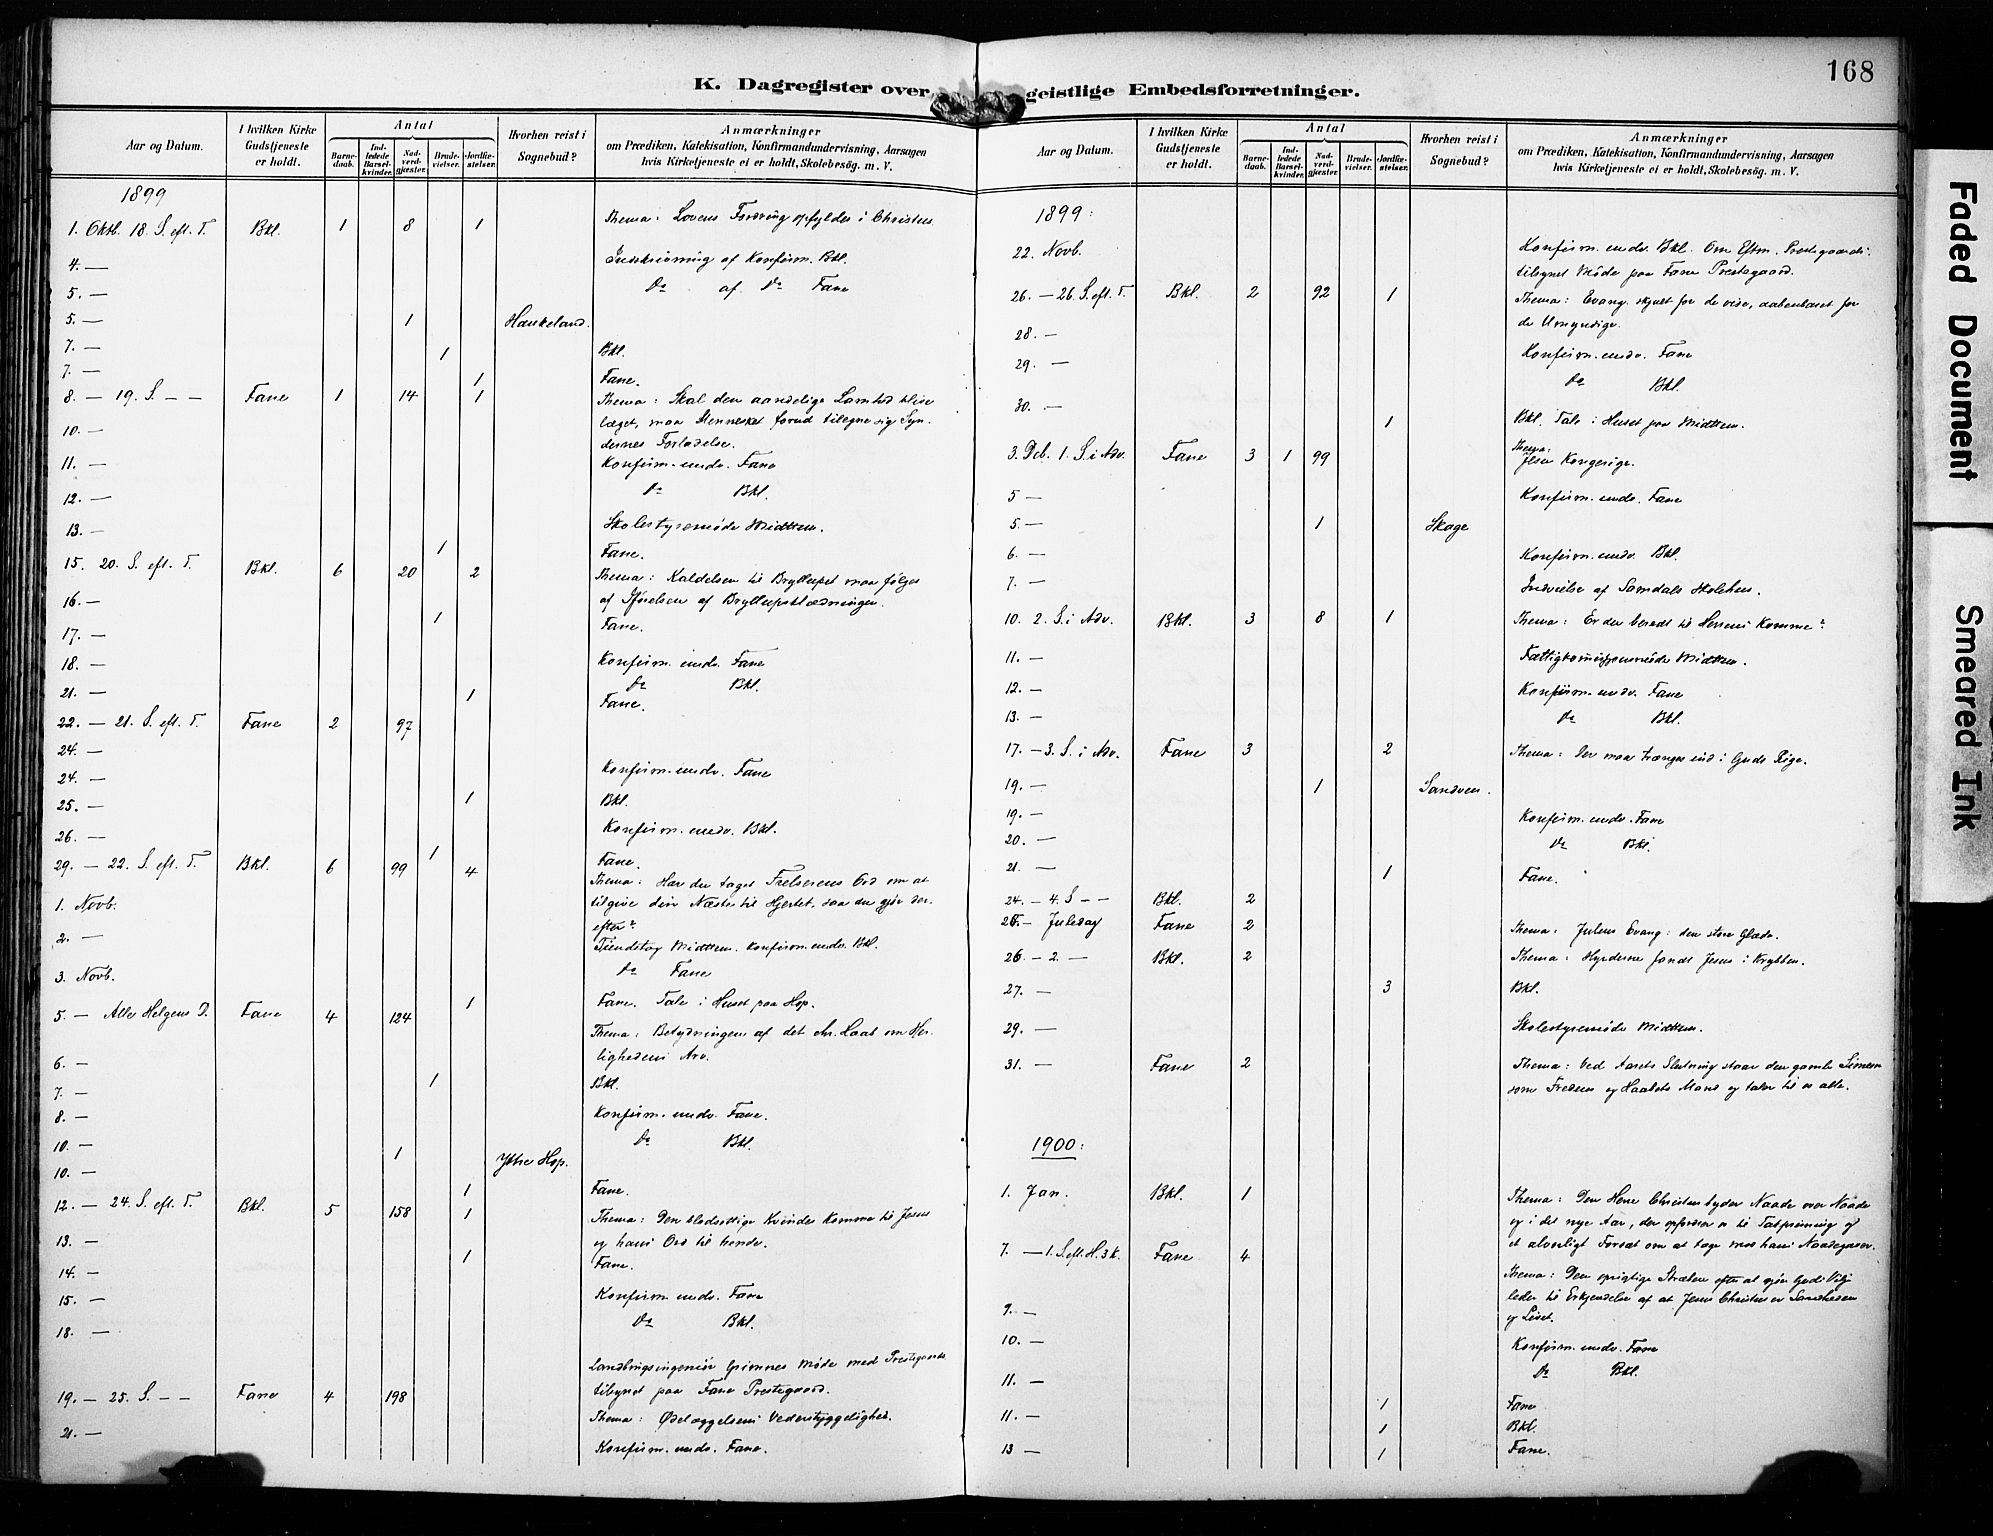 168
K. Dagregister over geistlige Embedsforretninger.
Aar og Datum. I hvilken Kirke Gudstjeneste er holdt. Antal Barnedaab. Indledede Barselkvinder. Nadverdgjester. Brudevielser. Jordfæstelser. Hvorhen reist i Sognebud? Anmærkninger om Prædiken, Katekisation, Konfirmandundervisning, Aarsagen hvis Kirketjeneste ei er holdt, Skolebesög. m. V.
1899
1. Oktb. 18. S. eft. T. Bkl. 1 8 1 Thema: Lovens Fordring opfyldes i Christus
4. — Indskrivning af Konfirm. Bkl.
5. — Do af Do Fane
5. — 1 Haukeland.
7. — 1 Bkl.
7. — 1 Fane.
8. — 19. S. — — Fane 1 14 1 Thema: Skal den aandelige Lamhed blive
læget, maa Mennesket forud tilegne sig Syn-
10. — dernes Forladelse.
11. — Konfirm. undv. Fane
12. — Do Bkl.
13. — Skolestyremøde Midttun.
1 Fane.
15. 20. S. eft. T. Bkl. 6 20 2 Thema: Kaldelsen til Bryllupet maa følges
16. — af Iførelsen af Bryllupsklædningen.
17. — 1 Fane.
18. — Konfirm. undv. Fane
Do Bkl.
21. — 1 Fane.
22. — 21. S. eft. T. Fane 2 97
24. —
24. — Konfirm. undv. Fane
25. — 1 Bkl.
26. — Konfirm. undv. Bkl.
1 Fane.
29. — 22. S. eft. T. Bkl. 6 99 4 Thema: Har du taget Frelserens Ord om at
1. Novb. tilgive din Næste til Hjertet, saa du gjør der-
efter?
2. — Tiendetag Midttun. Konfirm. undv. Bkl.
3. Novb. Do Fane
1 Fane. Tale i Huset paa Hop.
5. — Alle Helgens D. Fane 4 124 Thema: Betydningen af det chr. Haab om Her-
6. — lighedens Arv.
7. — 1 Bkl.
8. — Konfirm. undv. Fane.
10. — Do Bkl.
10. — 1 Ytre Hop.
1 Fane.
12. — 24. S. eft. T. Bkl. 5 158 1 Thema: Den blodsottige Kvindes Komme til Jesus
13. — og hans Ord til hende.
14. — 1 Fane.
15. — Konfirm. undv. Fane
18. — Do Bkl.
Landbrugsingeniør Grimnes Møde med Prestegaards-
19. — 25. S. — — Fane 4 198 tilsynet paa Fane Prestegaard.
Thema: Ødelæggelsens Vederstyggelighed.
21. — Konfirm. undv. Fane.
Aar og Datum. I hvilken Kirke Gudstjeneste er holdt. Antal Barnedaab. Indledede Barselkvinder. Nadverdgjester. Brudevielser. Jordfæstelser. Hvorhen reist i Sognebud? Anmærkninger om Prædiken, Katekisation, Konfirmandundervisning, Aarsagen hvis Kirketjeneste ei er holdt, Skolebesög. m. V.
1899:
22. Novb. Konfirm. undv. Bkl. Om Eftm. Prestegaards-
tilsynet Møde paa Fane Prestegaard.
26. — 26. S. eft. T. Bkl. 2 92 1 Thema: Evang. skjult for de vise, aabenbaret for
28. — de Umyndige.
29. — Konfirm. undv. Fane
Do Bkl.
30. — 1 Bkl. Tale i Huset paa Midttun.
3. Dcb. 1. S. i Adv. Fane 3 1 99 Thema: Jesu Kongerige.
5 — Konfirm. undv. Fane
5. — 1 Skage
6. — Konfirm. undv. Bkl.
7. — Indvielse af Samdals Skolehus.
10. 2. S. i Adv. Bkl. 3 8 1 Thema: Er du beredt til Herrens Komme?
11. — Fattigkommissionsmøde Midttun.
12. — Konfirm. undv. Fane
13. — Do Bkl.
17. — 3. S. i Adv. Fane 3 2 Thema: Der maa trænges ind i Guds Rige.
19. — 1 Sandven.
19. — Konfirm. undv. Fane
20. — Do Bkl.
21. — 1 Fane.
24. — 4. S — — Bkl. 2
25. — Juledag Fane 2 Thema: Julens Evang: den store Glæde.
26 — 2. — Bkl. 2 Thema: Hyrderne fandt Jesus i Krybben.
27. — 3 Bkl.
29. — Skolestyremøde Midttun.
31. — Fane 2 Thema: Ved Aarets Slutning staar den gamle Simeon
som Fredens og Haabets Mand og taler til os alle.
1900:
1. Jan. Bkl. 1 Thema: Den Herre Christus byder Naade over Naade
og i det nye Aar, der opfordrer os til Takprisning og
et alvorligt Forsæt om at tage mod hans Naadegaver.
7. — 1. S. eft. H. 3 K. Fane 4 Thema: Den oprigtige Stræben efter at gjøre Guds Vilje
9. — leder til Erkjendelse af at Jesus Christus er Sandheden
og Livet.
10. — Konfirm. undv. Fane
11. — Do Bkl.
1 Fane
11. — 1 Bkl.
13 — 1 Fane.
Faded Document
Smeared Ink